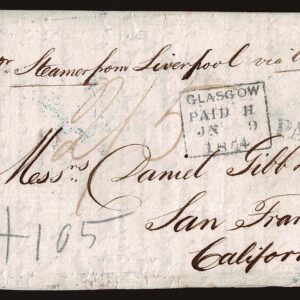 pr Steamer from Liverpool via
2/5
GLASGOW
PAID H
JN 9
1854
Messrs Daniel Gibb
San Fran
Califor
+105